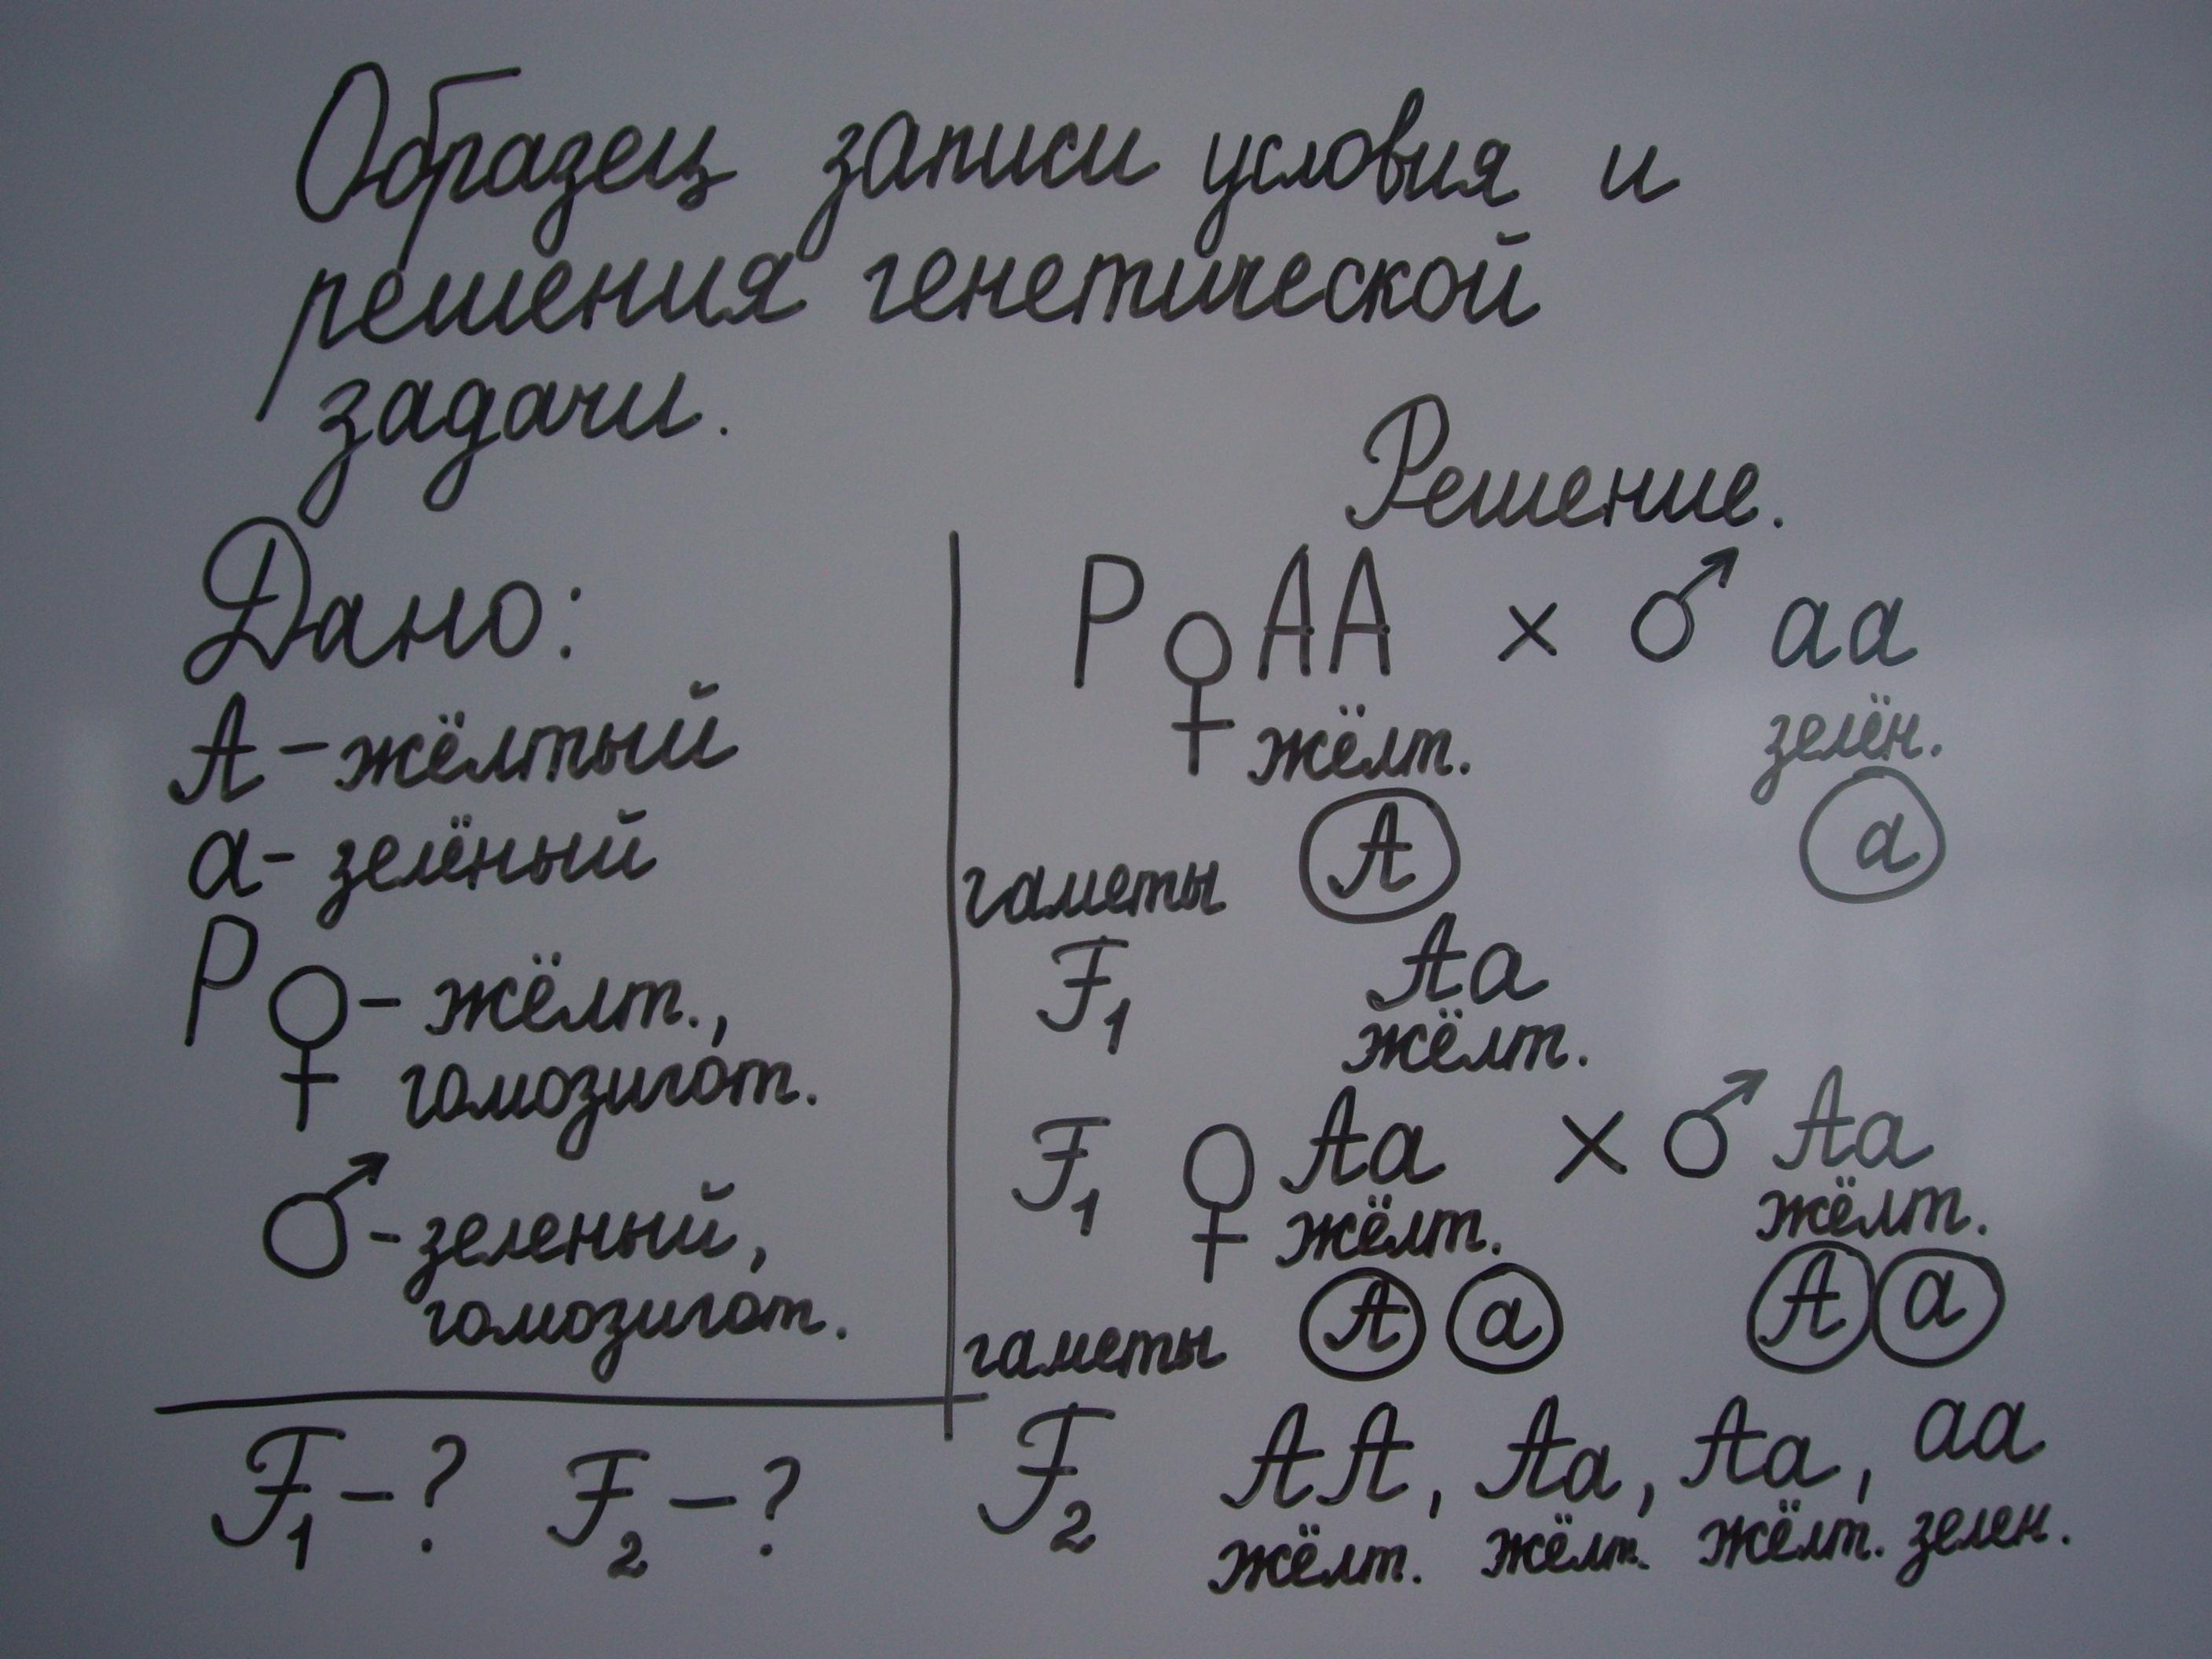 Образец записи условия и
решения генетической
задачи.
Дано:
А - жёлтый
а - зелёный
Р ♀ - жёлт.,
гомозигот.
♂ - зеленый,
гомозигот.
F₁ - ? F₂ - ?
Решение.
Р ♀ АА × ♂ аа
жёлт. зелён.
гаметы А а
F₁ Аа
жёлт.
F₁ ♀ Аа × ♂ Аа
жёлт. жёлт.
гаметы А а А а
F₂ АА, Аа, Аа, аа
жёлт. жёлт. жёлт. зелен.